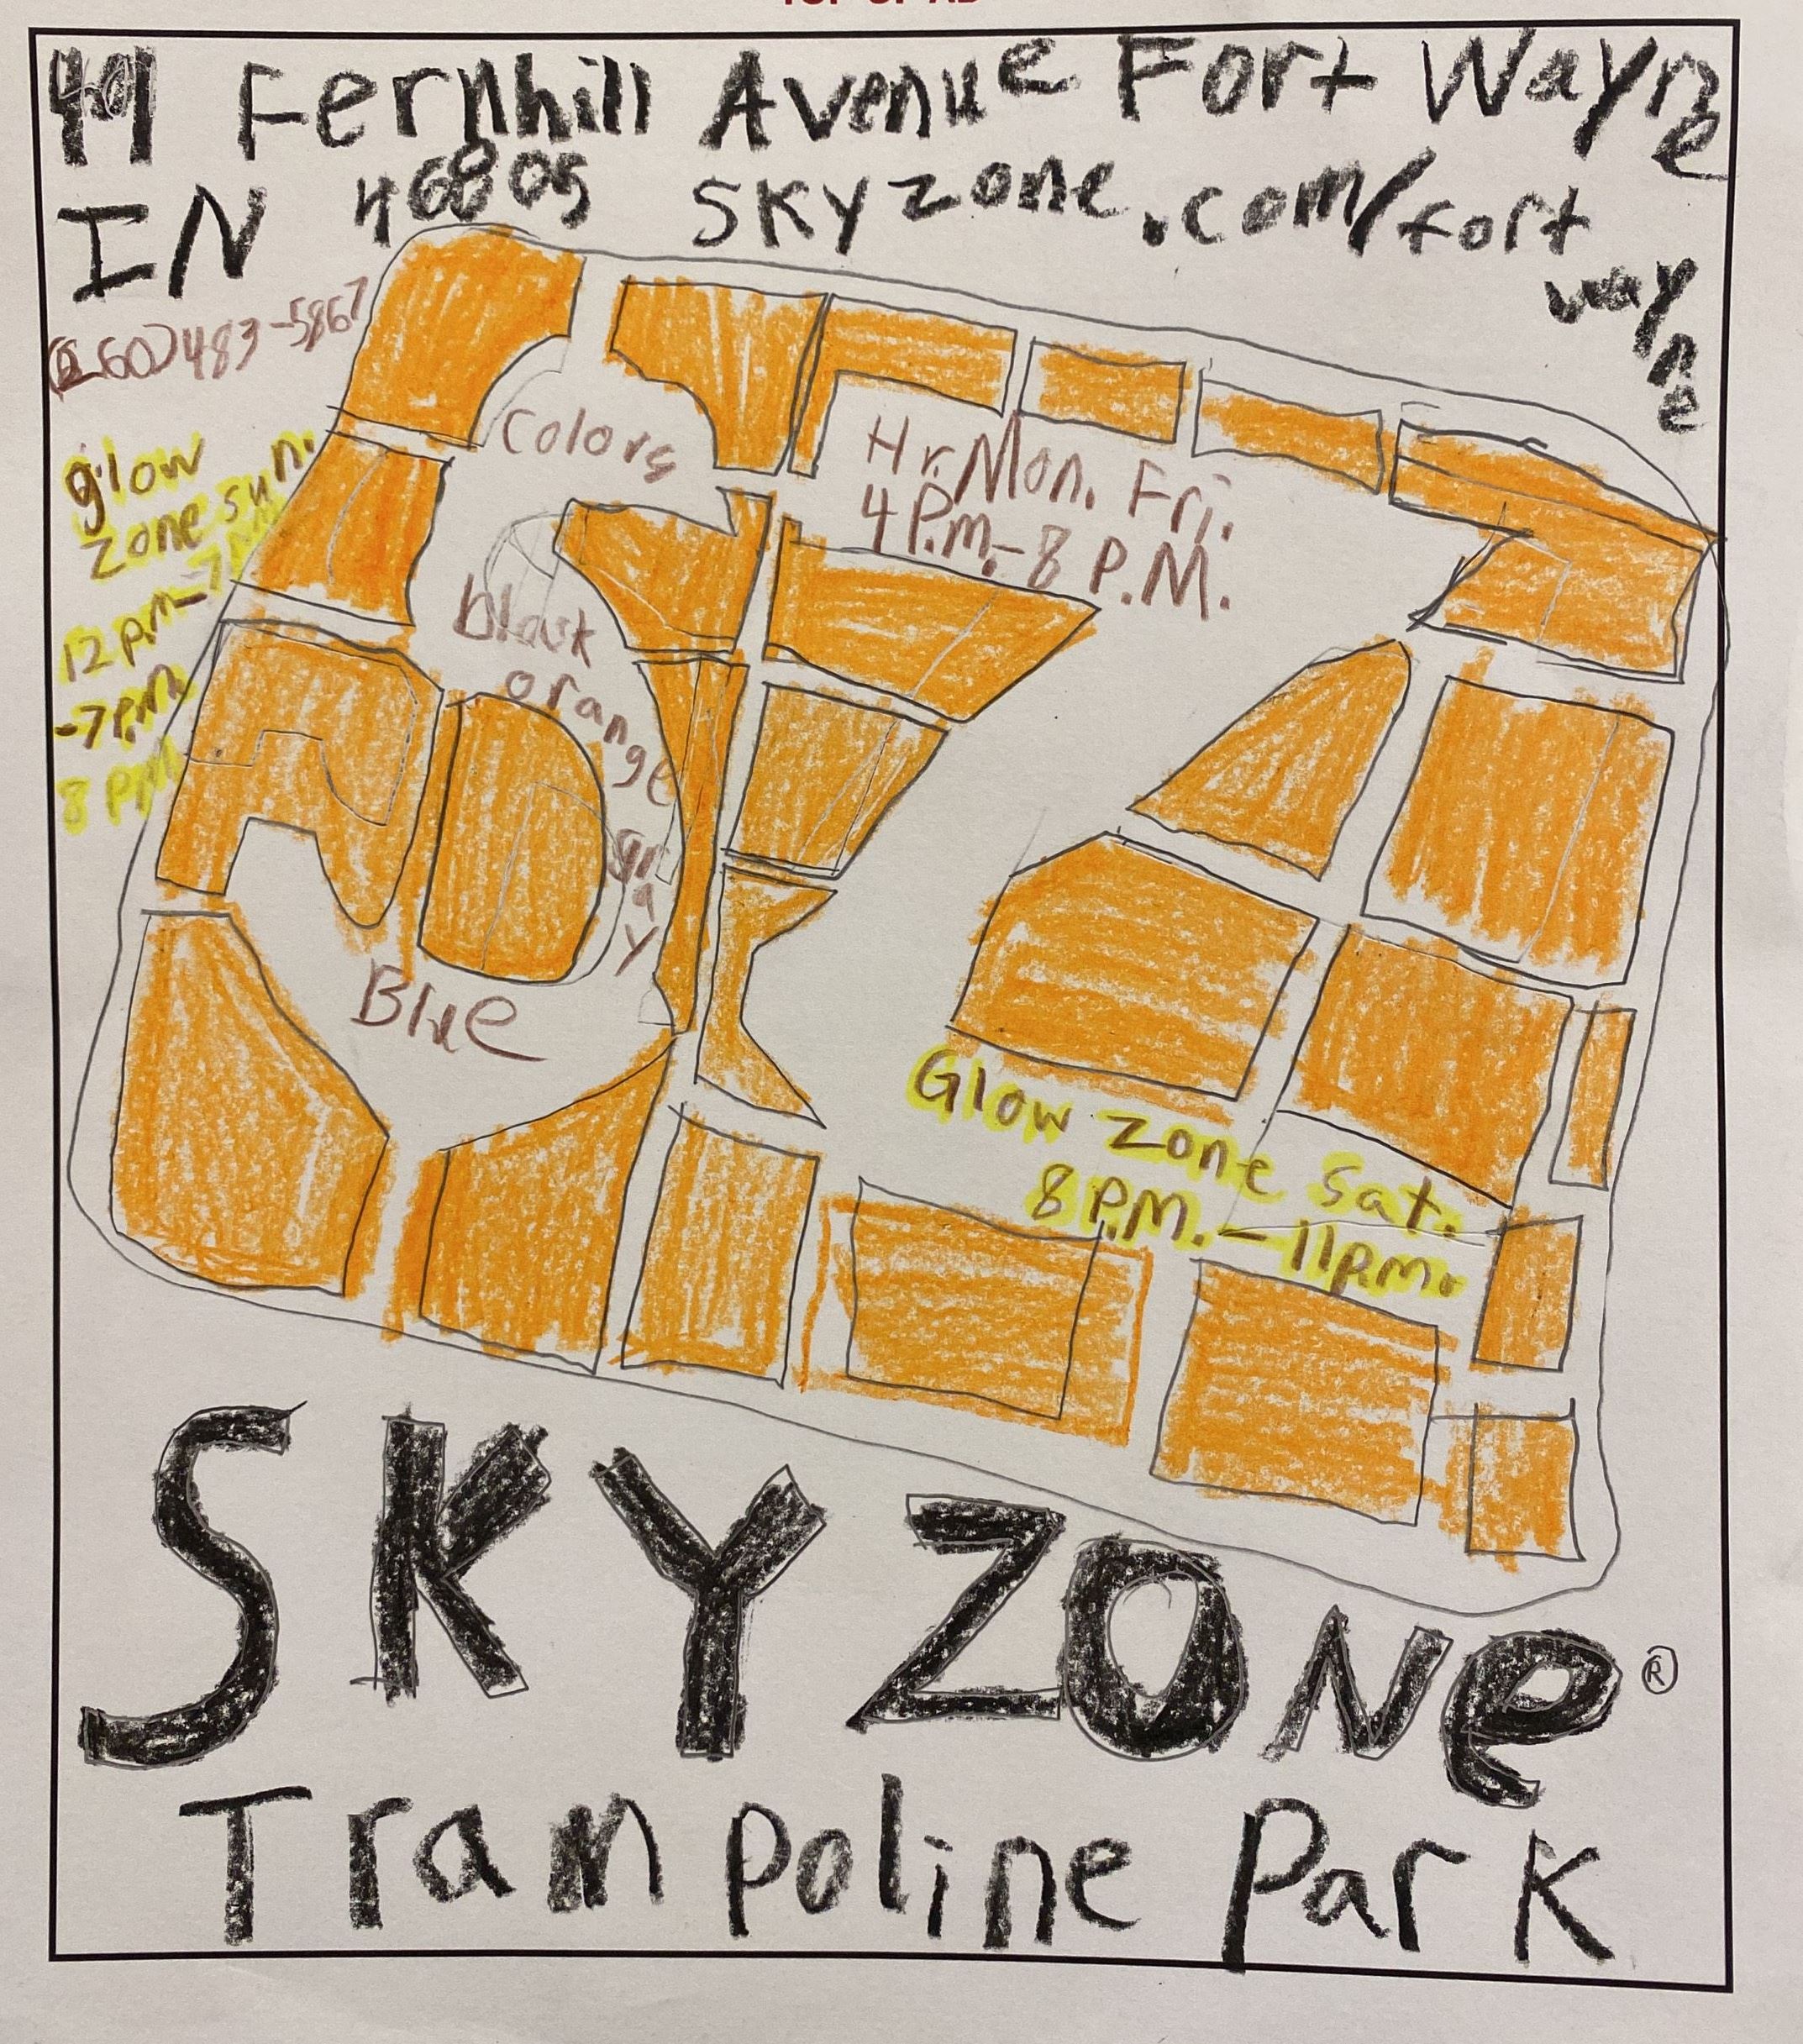 Fernhill Avenue Fort Wayne
IN 46805 skyzone.com/fort
wayne
(260)483-5867
glow
zone sun.
12 P.M-7PM
-7P.M
8 PM
Colors
black
orange
gray
Blue
Hr. Mon. Fri.
4 P.m.-8 P.M.
Glow zone Sat.
8 P.M.-11p.m.
SKYZONe®
Trampoline Park